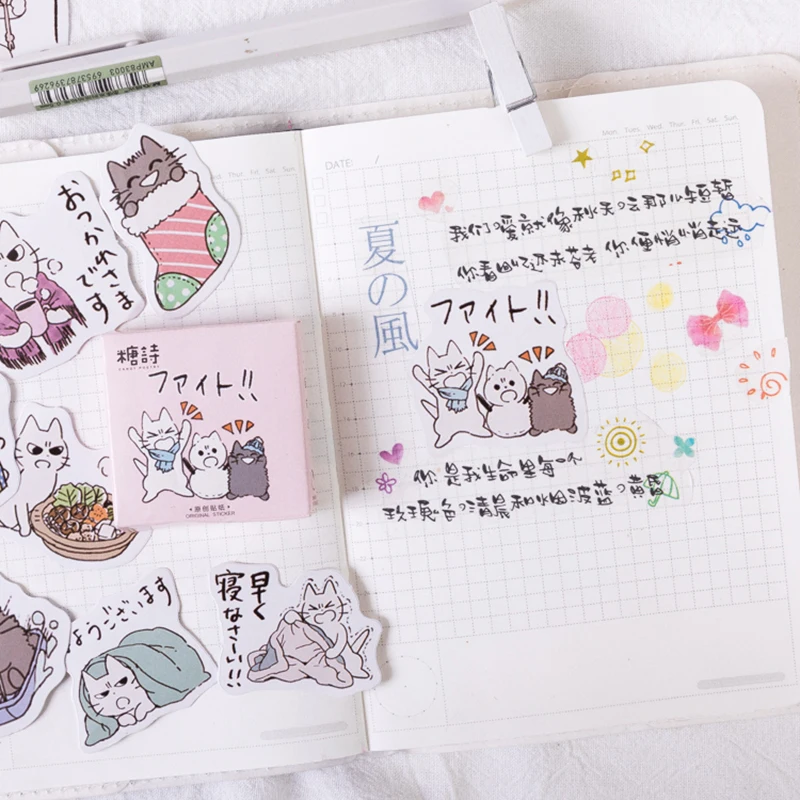 AMP83003
6953787396269
おつかれさま
です
糖詩
ファイト!!
·原创贴纸·
ORIGINAL STICKER
ようございます
早く
寝なさーい!!
Sun.
DATE: /
Mon. Tues. Wed. Thur. Fri. Sat. Sun.
夏の風
我们的爱就像秋天的云那么短暂
你看山川还未苍老 你便悄悄走远
ファイト!!
你是我生命里每一个
玫瑰色的清晨和烟波蓝的黄昏